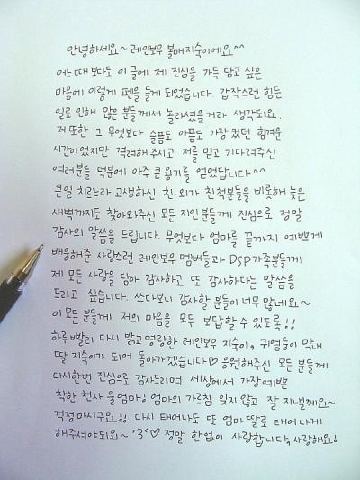 안녕하세요~ 레인보우 불매지숙이에요^^
어느때보다도 이 글에 제 진심을 가득 담고 싶은
마음에 이렇게 펜을 들게 되었습니다. 갑작스런 힘든
일로 인해 많은 분들께서 놀라셨을거라 생각되요.
저 또한 그 무엇보다 슬픔도 아픔도 가장 컸던 힘겨운
시간이었지만 격려해주시고 저를 믿고 기다려주신
여러분들 덕분에 아주 큰 용기를 얻었답니다^^
큰일 치르느라 고생하신 친.외가 친척분들을 비롯해 늦은
새벽까지도 찾아와주신 모든 지인분들께 진심으로 정말
감사의 말씀을 드립니다. 무엇보다 엄마를 끝까지 예쁘게
배웅해준 사랑스런 레인보우 멤버들과 DSP가족분들께
제 모든 사랑을 담아 감사하고 또 감사하다는 말씀을
드리고 싶습니다. 쓰다보니 감사할 분들이 너무 많네요~
이 모든 분들께 저의 마음을 모두 보답할 수 있도록!!
하루빨리 다시 밝고 명랑한 레인보우 지숙이, 귀염둥이 막내
딸 지숙이가 되어 돌아가겠습니다♡ 응원해주신 모든 분들께
다시한번 진심으로 감사드리며 세상에서 가장 예쁜
착한 천사 울엄마! 엄마의 가르침 잊지않고 잘 지낼께요~
걱정마시구요!! 다시 태어나도 또 엄마 딸로 태어나게
해주셔야되요~ '3'♡ 정말 한없이 사랑합니다, 사랑해요!